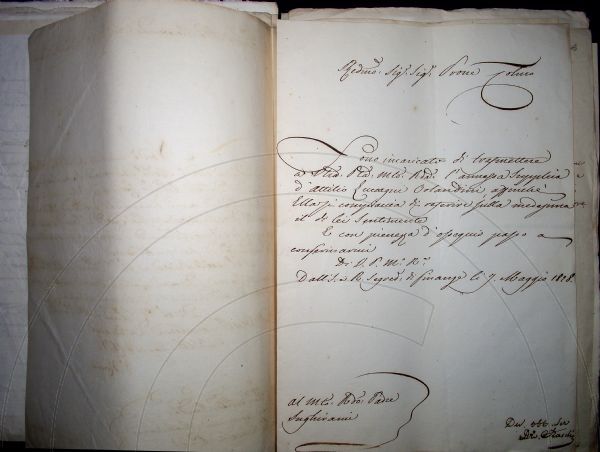 Redmo: Sigr. Sigr. Prone Colmo
Sono incaricato di trasmettere
a V.ra Rda. Mto. Rda. l'annessa supplica
d'Attilio Orlandini affinché
Ella si compiaccia di referire sulla medesima
il di lei sentimento
E con pienezza d'ossequio passo a
confermarmi
Di V. P. M. R.
Dall'I. e R. Segreta. di Finanze li 7. Maggio 1828.
al Mto. Rdo. Padre
Inghirami
Dev. obb. Ser